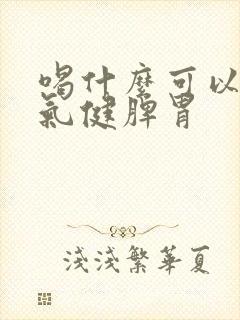 喝什麼可以
氣健脾胃
淺淺繁華夏